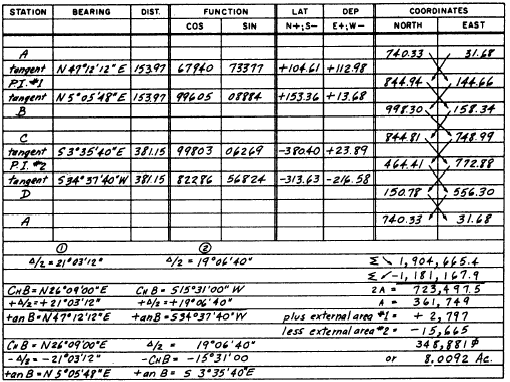 STATION BEARING DIST. FUNCTION LAT DEP COORDINATES
COS SIN N+;S- E+;W- NORTH EAST
A 740.33 31.68
tangent N 47°12'12" E 153.97 67940 73377 +104.61 +112.98
P.I. #1 844.94 144.66
tangent N 5°05'48" E 153.97 99605 08884 +153.36 +13.68
B 998.30 158.34
C 844.81 748.99
tangent S 3°35'40" E 381.15 99803 06269 -380.40 +23.89
P.I. #2 464.41 772.88
tangent S34°37'40" W 381.15 82286 56824 -313.63 -216.58
D 150.78 556.30
A 740.33 31.68
① ②
Δ/2 = 21°03'12" Δ/2 = 19°06'40" Σ↘ 1,904,665.4
Σ↙ -1,181,167.9
CHB = N26°09'00"E CHB = S15°31'00" W 2A = 723,497.5
+Δ/2 = +21°03'12" +Δ/2 = +19°06'40" A = 361,749
tan B = N47°12'12"E tan B = S34°37'40"W plus external area #1 = + 2,797
less external area #2 = -15,665
CHB = N26°09'00"E Δ/2 = 19°06'40" 348,881 ☐'
-Δ/2 = -21°03'12" -CHB = -15°31'00 or 8.0092 Ac.
tan B = N 5°05'48"E tan B = S 3°35'40"E